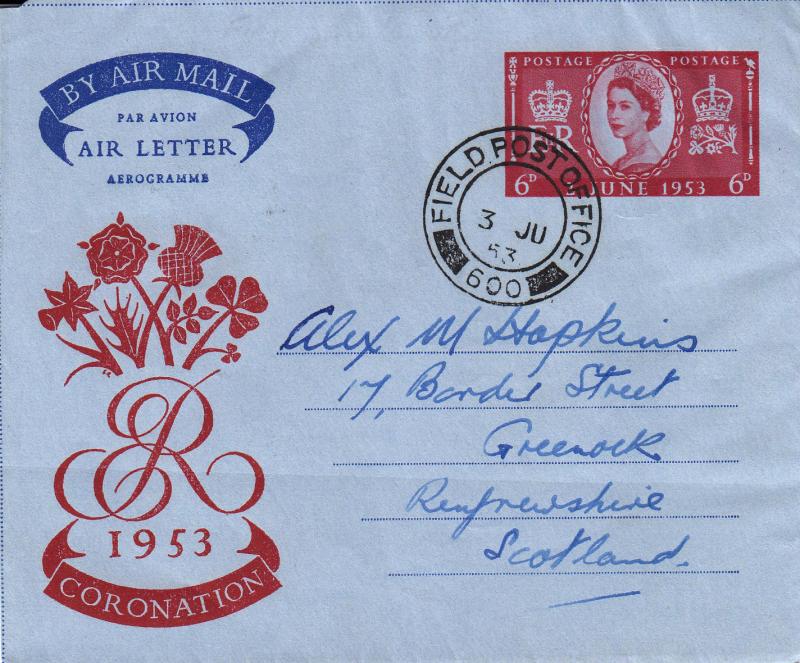 BY AIR MAIL
PAR AVION
AIR LETTER
AEROGRAMME
POSTAGE POSTAGE
E R
6D JUNE 1953 6D
FIELD POST OFFICE
3 JU
53
600
Alex M Hopkins
17, Border Street
Greenock
Renfrewshire
Scotland.
ER
1953
CORONATION